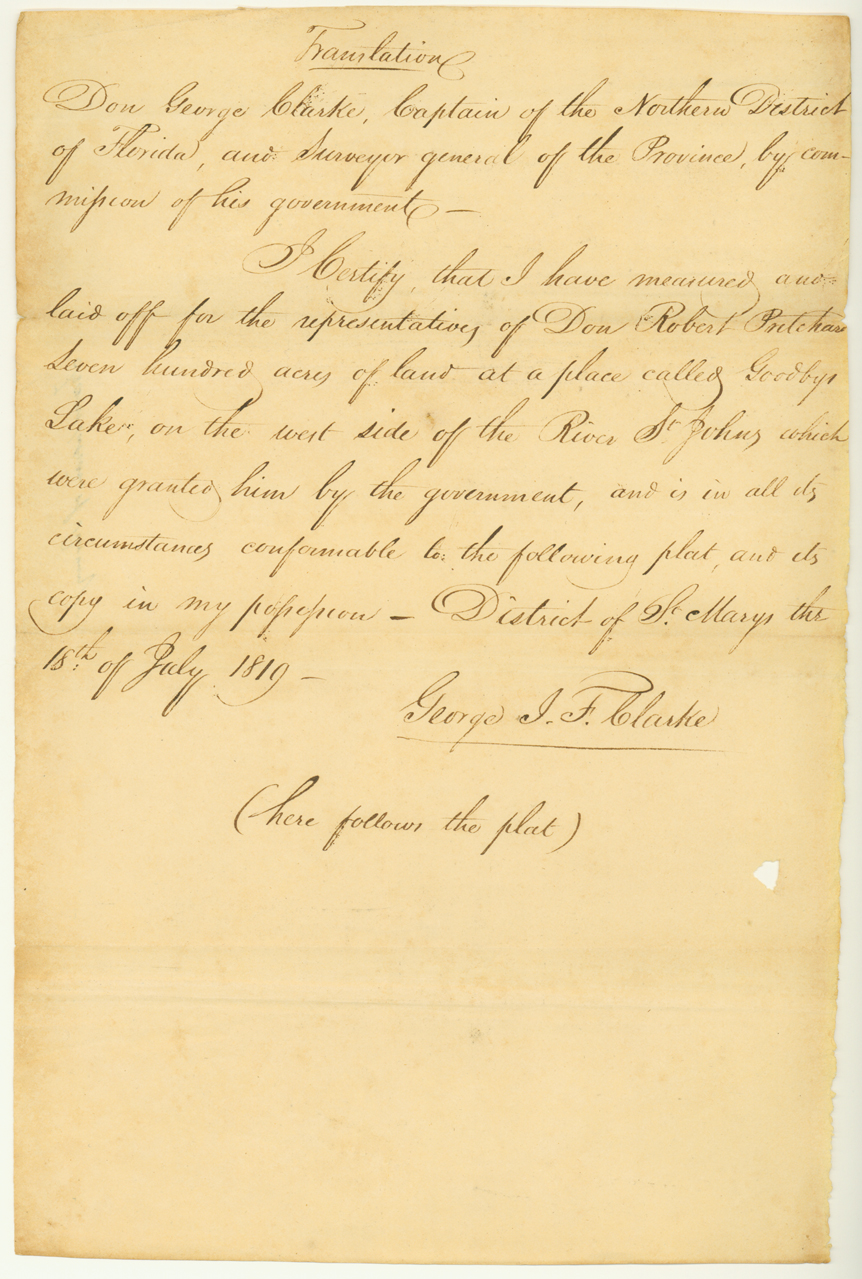 Translation
Don George Clarke, Captain of the Northern District
of Florida, and Surveyor general of the Province, by com-
mission of his government —
I Certify, that I have measured and
laid off for the representatives of Don Robert Pritchard
Seven hundred acres of land at a place called Goodbys
Lake, on the west side of the River St. Johns which
were granted him by the government, and is in all its
circumstances conformable to the following plat, and its
copy in my possession — District of St. Marys the
18th. of July 1819 —
George J. F. Clarke
(here follows the plat)